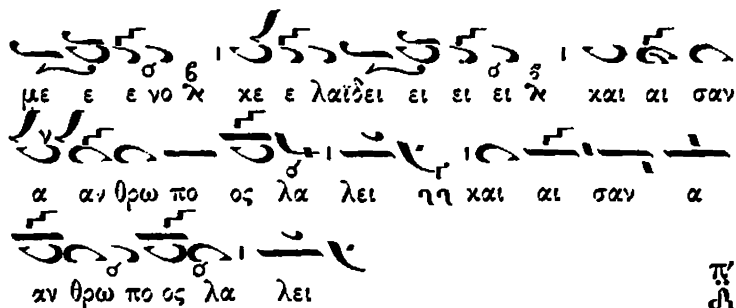 με ε ε νο λ κε ε λαϊδει ει ει ει λ και αι σαν
α αν θρω πο ος λα λει ηη και αι σαν α
αν θρω πο ος λα λει πʹ